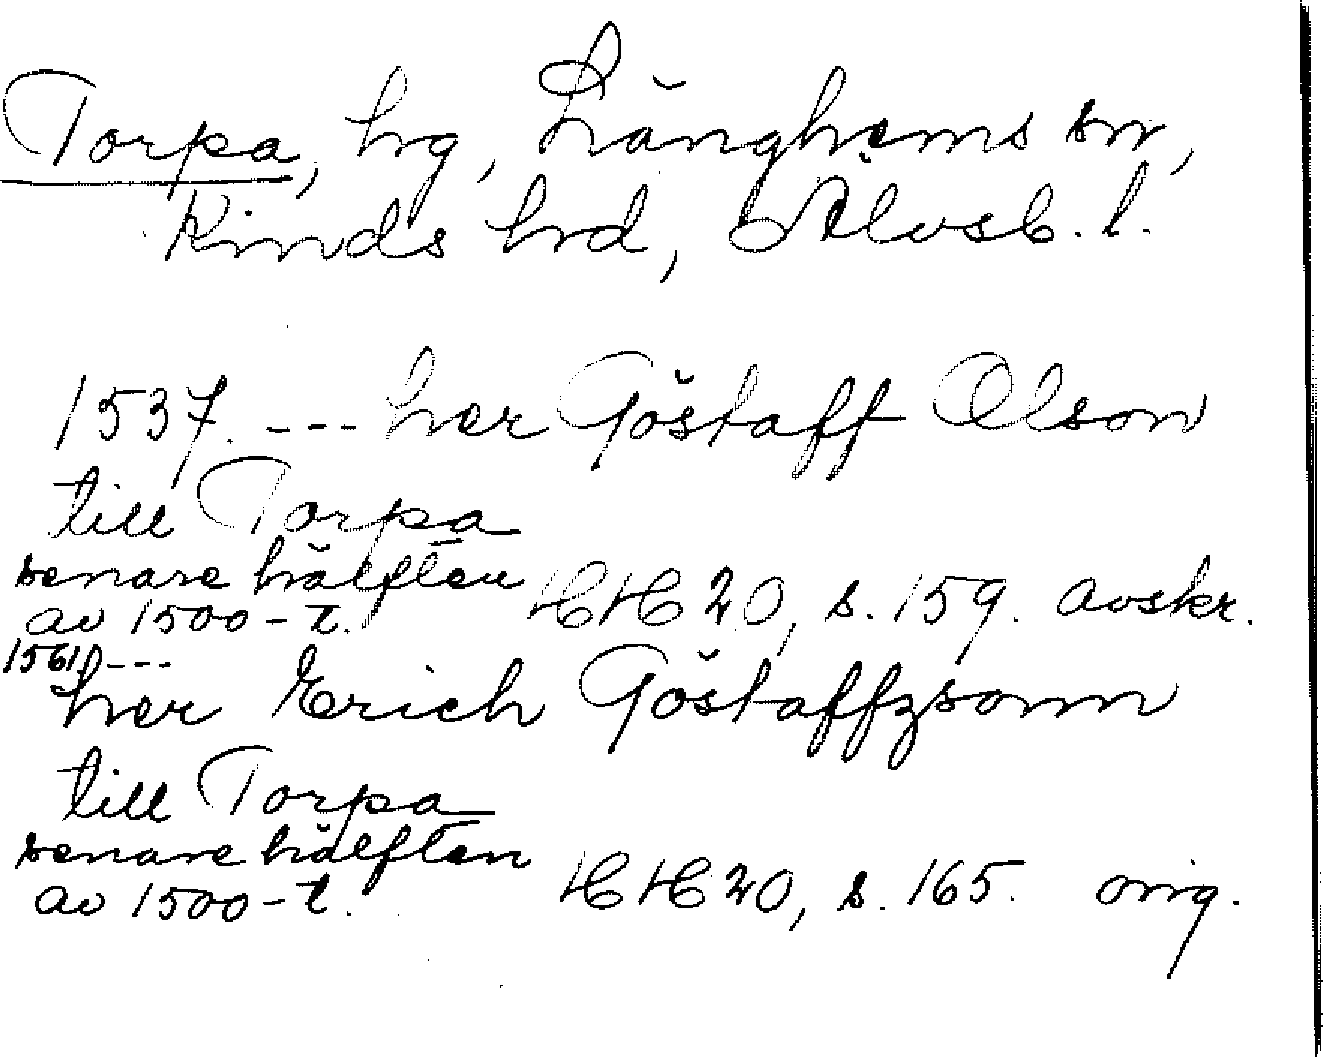 Torpa, hg, Länghems sn,
Kinds hd, Älvsb. l.
1537. --- her Göstaff Olson
till Torpa
senare hälften
av 1500-t. HH 20, s. 159. avskr.
1561 ---
her Erich Göstaffzsonn
till Torpa
senare hälften
av 1500-t. HH 20, s. 165. orig.